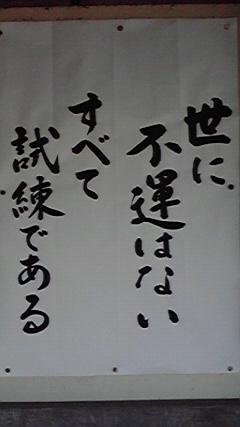 世に
不運はない
すべて
試練である